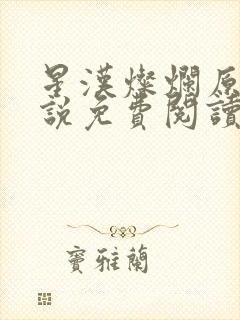 星漢燦爛原
說免費閱讀
竇雅蘭